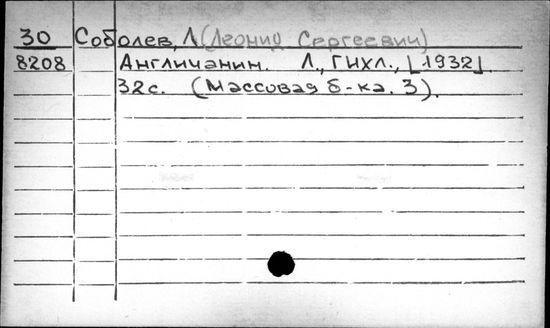 30 Соболев, Л (Леонид Сергеевич)
8208 Англичанин. Л., ГИХЛ., [1932].
32с. (Массовая б-ка. 3).